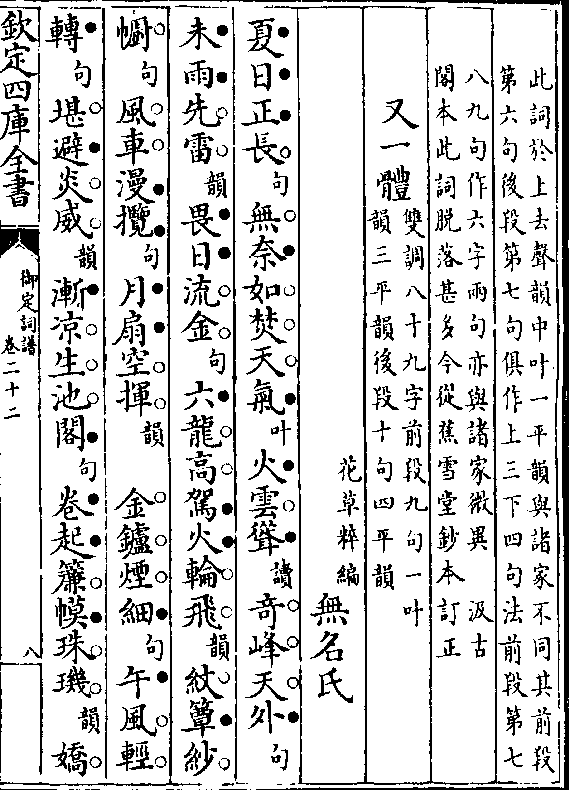 此詞於上去聲韻中叶一平韻與諸家不同其前段
第六句後段第七句俱作上三下四句法前段第七
八九句作六字兩句亦與諸家微異　汲古
閣本此詞脱落甚多今從蕉雪堂鈔本訂正
又一體雙調八十九字前段九句一叶
韻三平韻後段十句四平韻
花草粹編　無名氏
夏日正長句無奈如焚天氣叶火雲聳讀竒峰天外句
未雨先雷韻畏日流金句六龍高駕火輪飛韻紋簟紗
幮句風車漫攪句月扇空揮韻　金鑪煙細句午風輕
轉句堪避炎威韻漸凉生池閣句卷起簾幙珠璣韻嬌
欽定四庫全書
御定詞譜
卷二十二
八